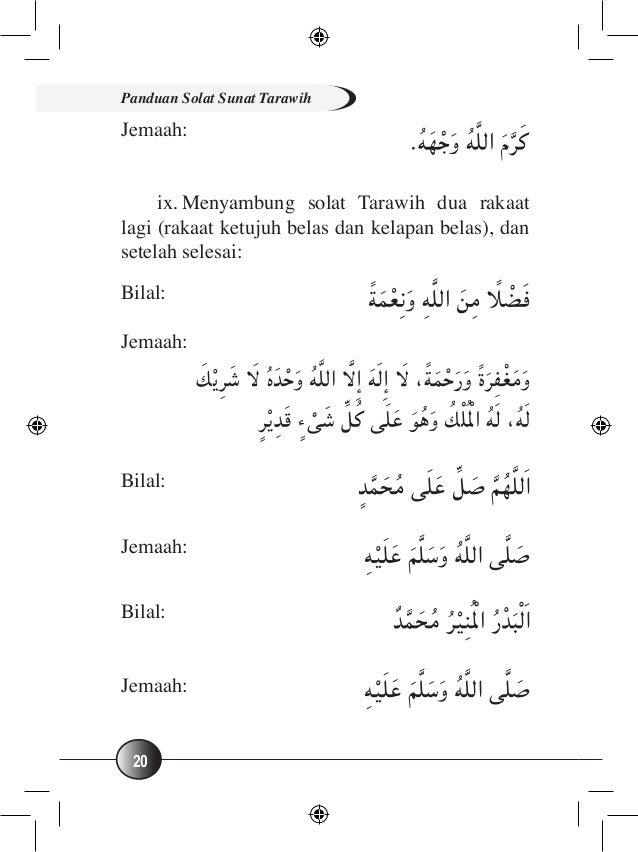 Panduan Solat Sunat Tarawih
Jemaah:
كَرَّمَ اللَّهُ وَجْهَهُ.
ix. Menyambung solat Tarawih dua rakaat
lagi (rakaat ketujuh belas dan kelapan belas), dan
setelah selesai:
Bilal:
فَضْلًا مِنَ اللَّهِ وَنِعْمَةً
Jemaah:
وَمَغْفِرَةً وَرَحْمَةً، لَا إِلَهَ إِلَّا اللَّهُ وَحْدَهُ لَا شَرِيْكَ
لَهُ، لَهُ الْمُلْكُ وَهُوَ عَلَى كُلِّ شَىْءٍ قَدِيْرٌ
Bilal:
اَللَّهُمَّ صَلِّ عَلَى مُحَمَّدٍ
Jemaah:
صَلَّى اللَّهُ وَسَلَّمَ عَلَيْهِ
Bilal:
اَلْبَدْرُ الْمُنِيْرُ مُحَمَّدٌ
Jemaah:
صَلَّى اللَّهُ وَسَلَّمَ عَلَيْهِ
20